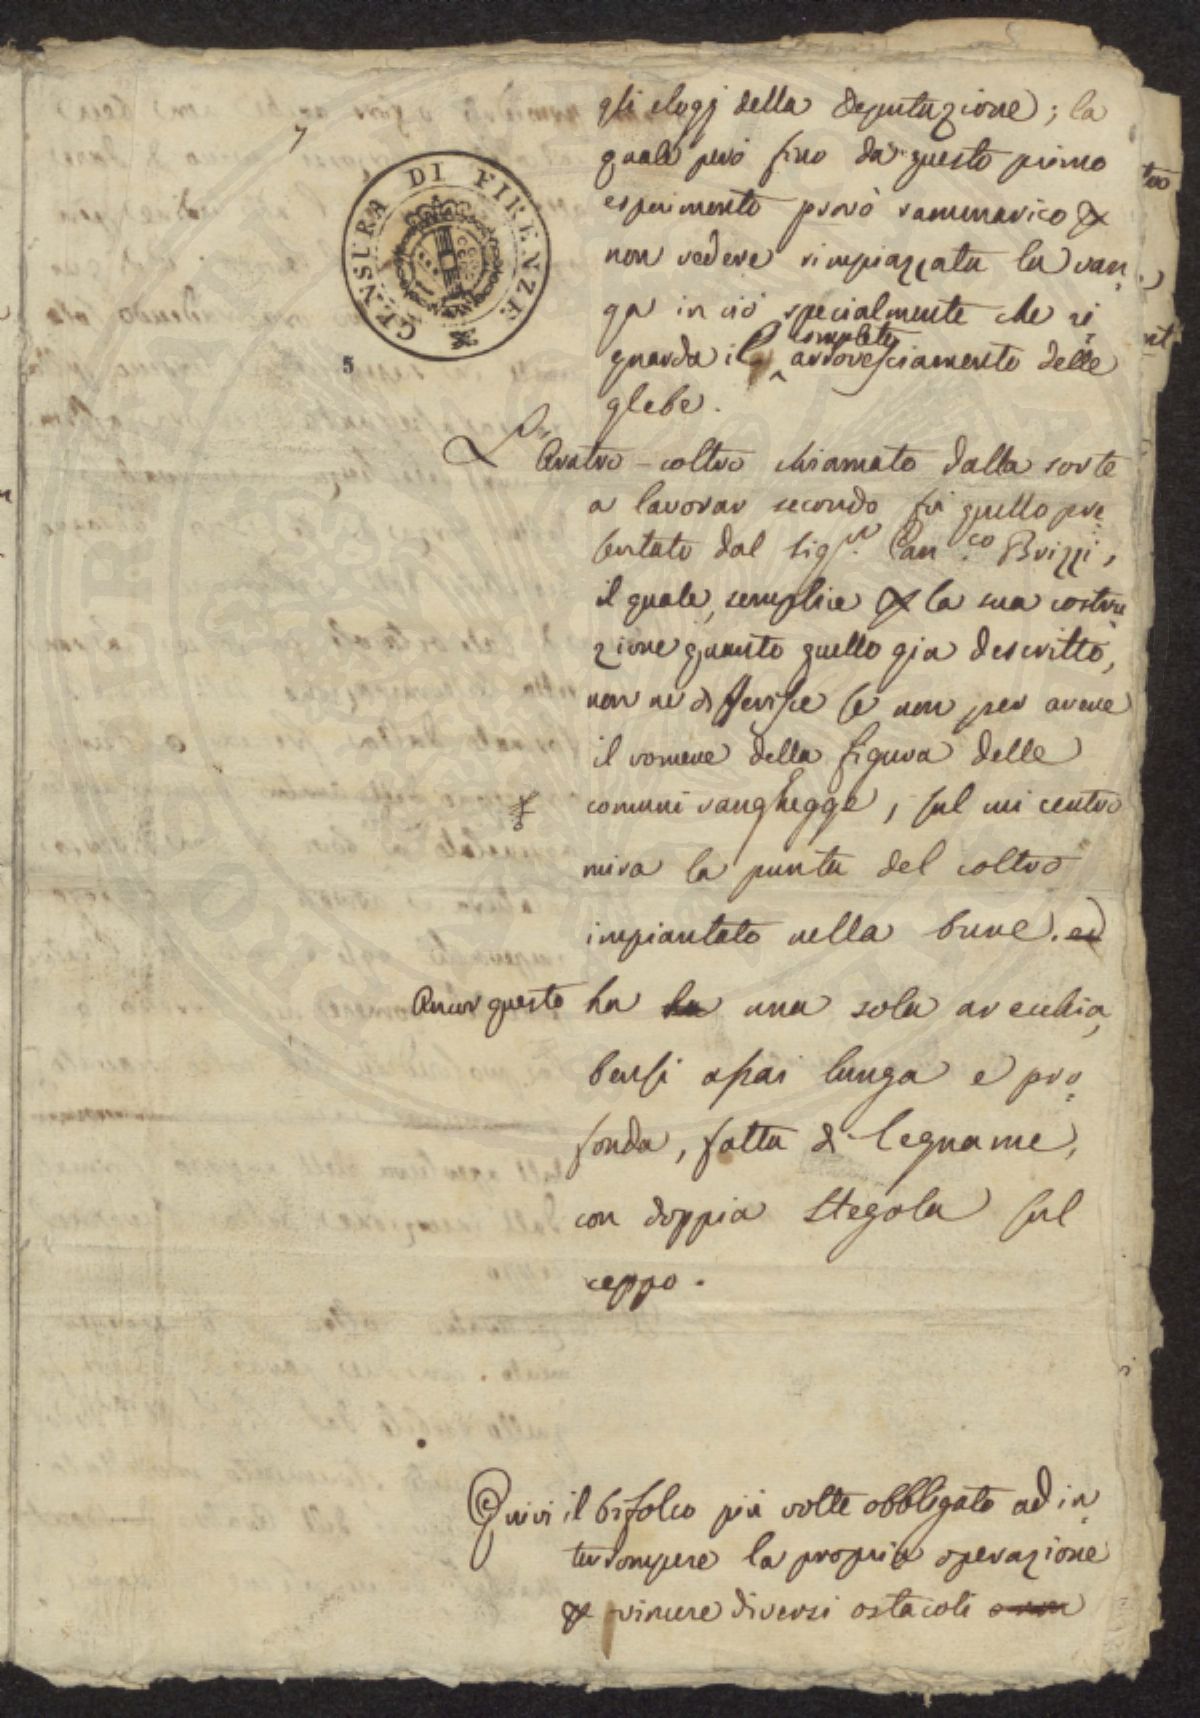 7
CENSURA DI FIRENZE
5
gli elogj della Deputazione; la
quale però fino da questo primo
esperimento provò rammarico
non vedere rimpiazzata la van=
ga in ciò specialmente che ri=
completo
guarda il arrovesciamento delle
glebe.
L'Aratro-coltro chiamato dalla sorte
a lavorar secondo fù quello pre=
sentato dal Sigr. Canco. Brizzi,
il quale, semplice la sua costru=
zione quanto quello già descritto,
non ne differisce se non per avere
il vomere della figura delle
comuni vanghegge, sul cui centro
mira la punta del coltro
impiantato nella bure. ed
Ancor questo ha ha una sola orecchia,
bensì assai lunga e pro=
fonda, fatta di legname,
con doppia stegola sul
ceppo.
Quivi il bifolco più volte obbligato ad in=
terrompere la propria operazione
vincere diversi ostacoli